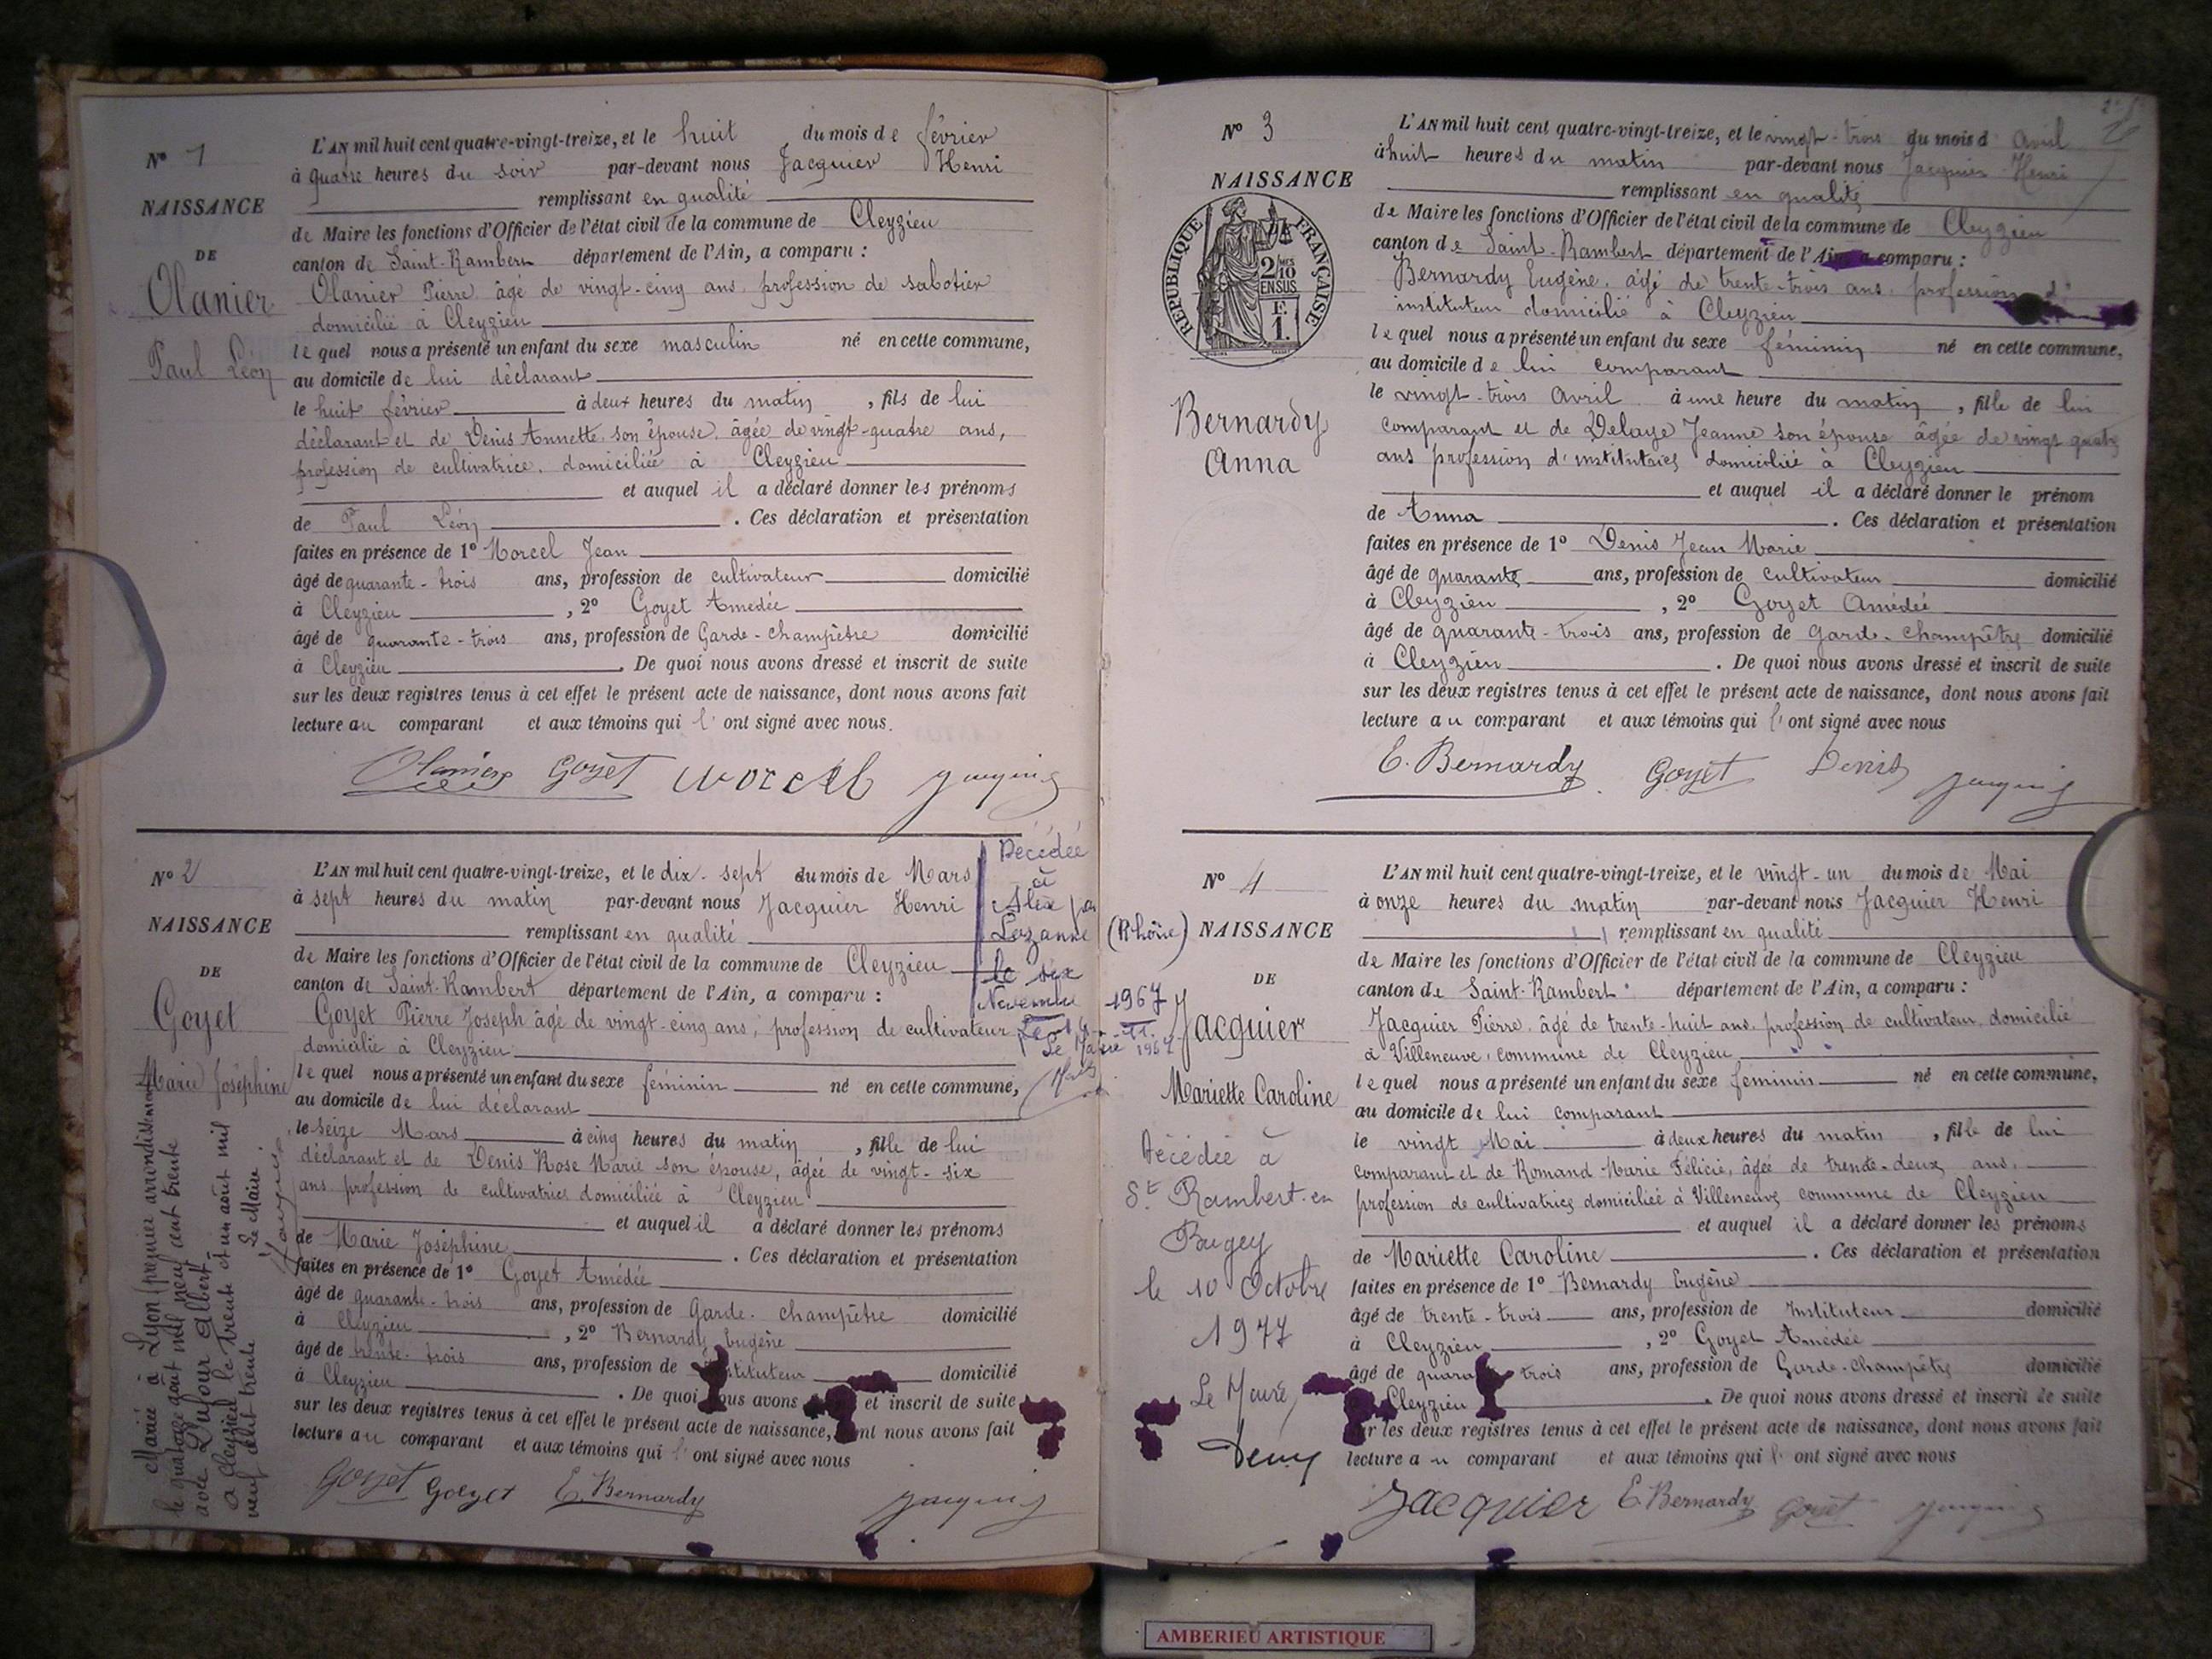 N° 1
NAISSANCE
DE
Olanier
Paul Léon
L'AN mil huit cent quatre-vingt-treize, et le huit du mois de février
à quatre heures du soir par-devant nous Jacquier Henri
remplissant en qualité
de Maire les fonctions d'Officier de l'état civil de la commune de Cleyzieu
canton de Saint-Rambert département de l'Ain, a comparu :
Olanier Pierre, âgé de vingt-cinq ans, profession de sabotier
domicilié à Cleyzieu
lequel nous a présenté un enfant du sexe masculin né en cette commune,
au domicile de lui déclarant
le huit février à deux heures du matin, fils de lui
déclarant et de Denis Annette, son épouse, âgée de vingt-quatre ans,
profession de cultivatrice, domiciliée à Cleyzieu
et auquel il a déclaré donner les prénoms
de Paul Léon. Ces déclaration et présentation
faites en présence de 1° Morcel Jean
âgé de quarante-trois ans, profession de cultivateur domicilié
à Cleyzieu, 2° Goyet Amédée
âgé de quarante-trois ans, profession de Garde-champêtre domicilié
à Cleyzieu. De quoi nous avons dressé et inscrit de suite
sur les deux registres tenus à cet effet le présent acte de naissance, dont nous avons fait
lecture au comparant et aux témoins qui l'ont signé avec nous.
Olanier Goyet Morcel Jacquier
N° 2
NAISSANCE
DE
Goyet
Marie Joséphine
Mariée à Lyon premier arrondissement
le quatorze août mil neuf cent trente
avec Dufour Albert
à Cleyzieu le trente et un août mil
neuf cent trente
Le Maire
L'AN mil huit cent quatre-vingt-treize, et le dix-sept du mois de Mars
à sept heures du matin par-devant nous Jacquier Henri
remplissant en qualité
de Maire les fonctions d'Officier de l'état civil de la commune de Cleyzieu
canton de Saint-Rambert département de l'Ain, a comparu :
Goyet Pierre Joseph âgé de vingt-cinq ans, profession de cultivateur
domicilié à Cleyzieu
lequel nous a présenté un enfant du sexe féminin né en cette commune,
au domicile de lui déclarant
le seize Mars à cinq heures du matin, fille de lui
déclarant et de Denis Rose Marie son épouse, âgée de vingt-six
ans profession de cultivatrice domiciliée à Cleyzieu
et auquel il a déclaré donner les prénoms
de Marie Joséphine. Ces déclaration et présentation
faites en présence de 1° Goyet Amédée
âgé de quarante-trois ans, profession de Garde-champêtre domicilié
à Cleyzieu, 2° Bernardy Eugène
âgé de trente-trois ans, profession de Instituteur domicilié
à Cleyzieu. De quoi nous avons et inscrit de suite
sur les deux registres tenus à cet effet le présent acte de naissance, dont nous avons fait
lecture au comparant et aux témoins qui l'ont signé avec nous
Goyet Goyet E. Bernardy Jacquier
Décédée
à
Alix par
Lozanne (Rhône)
le six
Novembre 1967
Le Maire
N° 3
NAISSANCE
RÉPUBLIQUE FRANÇAISE
2/10 MES
EN SUS
F.
1.
Bernardy
Anna
L'AN mil huit cent quatre-vingt-treize, et le vingt-trois du mois d'avril
à huit heures du matin par-devant nous Jacquier Henri
remplissant en qualité
de Maire les fonctions d'Officier de l'état civil de la commune de Cleyzieu
canton de Saint-Rambert département de l'Ain, a comparu :
Bernardy Eugène, âgé de trente-trois ans, profession d'
instituteur domicilié à Cleyzieu
lequel nous a présenté un enfant du sexe féminin né en cette commune,
au domicile de lui comparant
le vingt-trois Avril à une heure du matin, fille de lui
comparant et de Delaye Jeanne son épouse âgée de vingt quatre
ans profession d'institutrice domiciliée à Cleyzieu
et auquel il a déclaré donner le prénom
de Anna. Ces déclaration et présentation
faites en présence de 1° Denis Jean Marie
âgé de quarante ans, profession de cultivateur domicilié
à Cleyzieu, 2° Goyet Amédée
âgé de quarante-trois ans, profession de garde-champêtre domicilié
à Cleyzieu. De quoi nous avons dressé et inscrit de suite
sur les deux registres tenus à cet effet le présent acte de naissance, dont nous avons fait
lecture au comparant et aux témoins qui l'ont signé avec nous
E. Bernardy Goyet Denis Jacquier
N° 4
NAISSANCE
DE
Jacquier
Mariette Caroline
Décédée à
St Rambert-en
Bugey
le 10 Octobre
1977
Le Maire,
L'AN mil huit cent quatre-vingt-treize, et le vingt-un du mois de Mai
à onze heures du matin par-devant nous Jacquier Henri
remplissant en qualité
de Maire les fonctions d'Officier de l'état civil de la commune de Cleyzieu
canton de Saint-Rambert département de l'Ain, a comparu :
Jacquier Pierre, âgé de trente-huit ans, profession de cultivateur, domicilié
à Villeneuve, commune de Cleyzieu
lequel nous a présenté un enfant du sexe féminin né en cette commune,
au domicile de lui comparant
le vingt Mai à deux heures du matin, fille de lui
comparant et de Romand Marie Félicie, âgée de trente-deux ans,
profession de cultivatrice domiciliée à Villeneuve commune de Cleyzieu
et auquel il a déclaré donner les prénoms
de Mariette Caroline. Ces déclaration et présentation
faites en présence de 1° Bernardy Eugène
âgé de trente-trois ans, profession de Instituteur domicilié
à Cleyzieu, 2° Goyet Amédée
âgé de quarante trois ans, profession de Garde-champêtre domicilié
Cleyzieu. De quoi nous avons dressé et inscrit de suite
sur les deux registres tenus à cet effet le présent acte de naissance, dont nous avons fait
lecture au comparant et aux témoins qui l'ont signé avec nous
Jacquier E. Bernardy Goyet Jacquier
AMBERIEU ARTISTIQUE